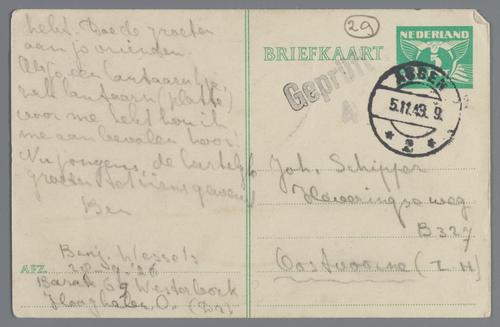 hebt. Doe de groeten
aan je vrienden.
Als je een lantaarn
zak lantaarn (platte)
voor me hebt hou ik
me aanbevolen hoor.
Nu jongens, de hartelijk
groeten tot ziens
Ben
AFZ.
Benj. Wessels
28-9-26
Barak 69 Westerbork
Hooghalen O. (Dr)
29
NEDERLAND
5
BRIEFKAART
Geprüft
4
ASSEN
5.11.43. 9.
* 2 *
Joh. Schipper
Heveringseweg
B327
Oostvoorne (Z.H)